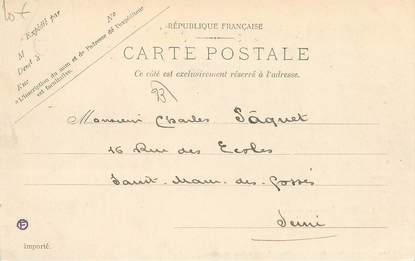 10€
Nº
Expédié par
M
Demt à
Rue
L'inscription du nom et de l'adresse de l'expéditeur
est facultative.
RÉPUBLIQUE FRANÇAISE
CARTE POSTALE
Ce côté est exclusivement réservé à l'adresse.
93
Monsieur Charles Pâquet
16 Rue des Ecoles
Saint-Maur-des-Fossés
Seine
importé.